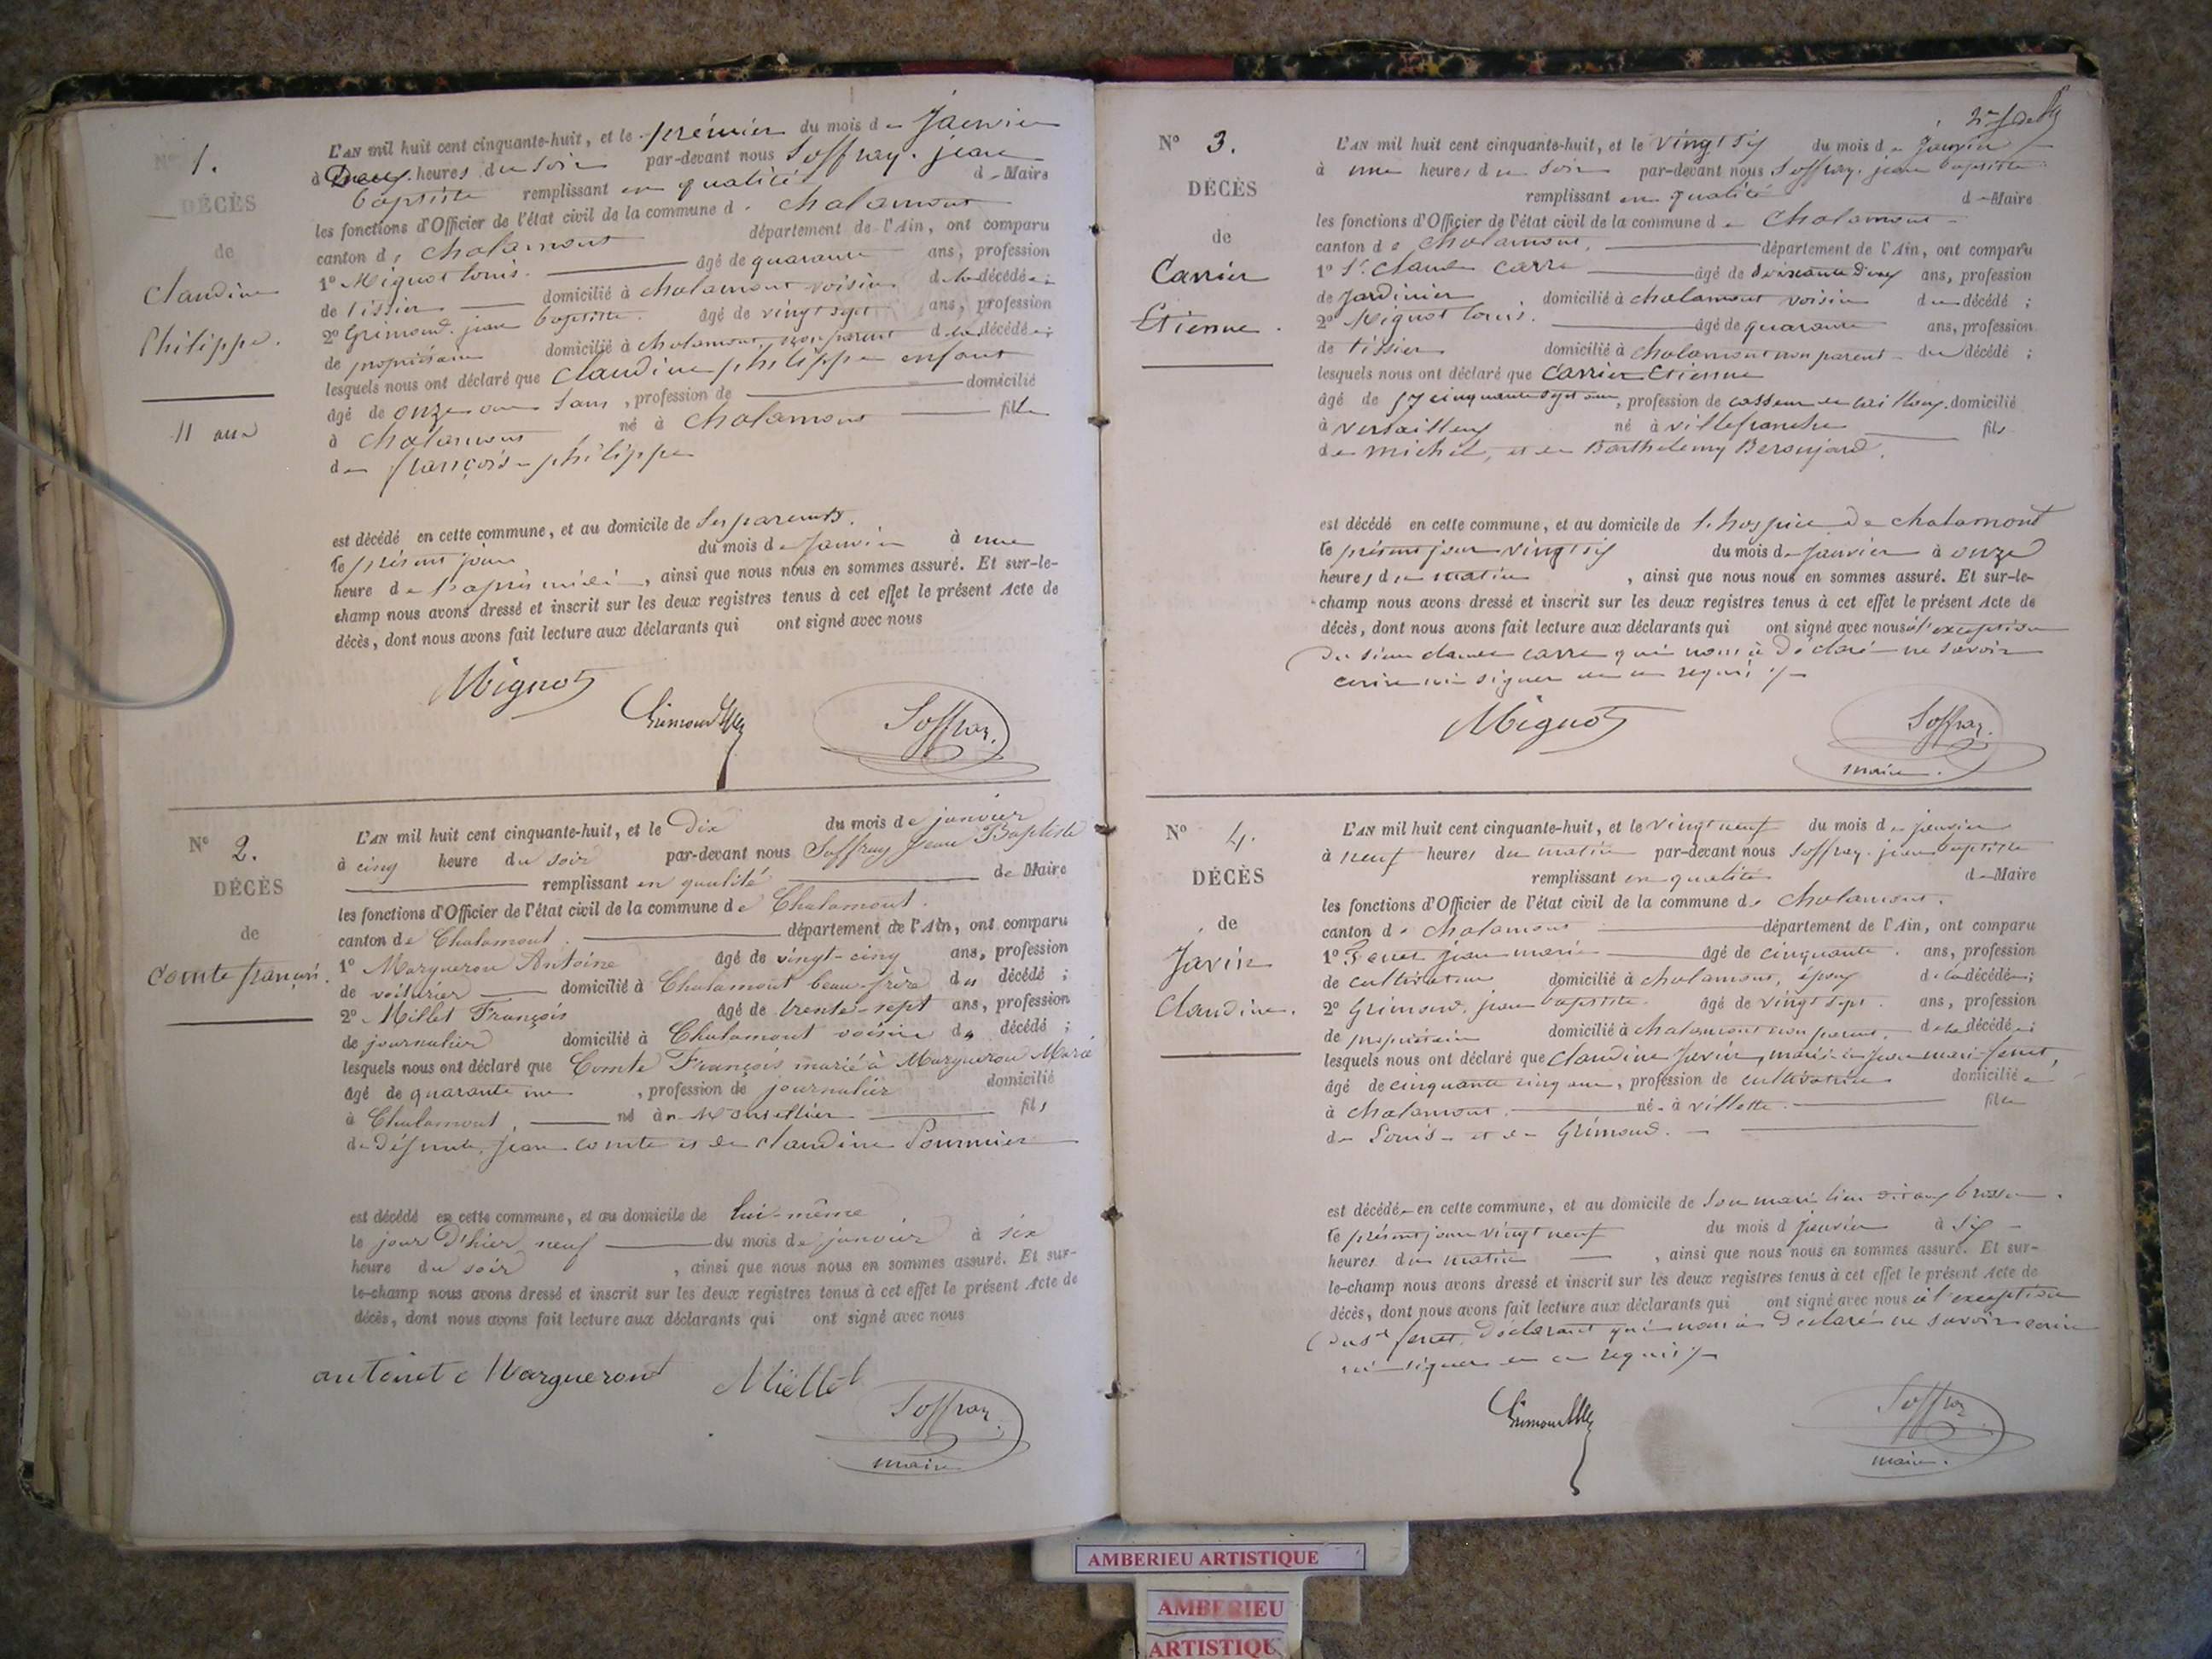 1.
DÉCÈS
de
Claudine
Philippe.
11 ans
L'AN mil huit cent cinquante-huit, et le premier du mois de Janvier
à Deux heures du soir par-devant nous Soffray jean
baptiste remplissant en qualité de Maire
les fonctions d'Officier de l'état civil de la commune d. chalamont
canton de chalamont département de l'Ain, ont comparu
1° Mignot Louis. âgé de quarante ans, profession
de tissier domicilié à chalamont voisin de la décédée;
2° Grimond jean baptiste. âgé de vingt sept ans, profession
de propriétaire domicilié à chalamont, non parent de la décédée;
lesquels nous ont déclaré que Claudine philippe enfant
âgé de onze ans, profession de domicilié
à chalamont né à chalamont fille
de françois philippe
est décédé en cette commune, et au domicile de ses parents.
le présent jour du mois de janvier à une
heure de l'après midi, ainsi que nous nous en sommes assuré. Et sur-le-
champ nous avons dressé et inscrit sur les deux registres tenus à cet effet le présent Acte de
décès, dont nous avons fait lecture aux déclarants qui ont signé avec nous
Mignot
Grimond
Soffray.
N° 2.
DÉCÈS
de
Comte françois.
L'AN mil huit cent cinquante-huit, et le Dix du mois de janvier
à cinq heure du soir par-devant nous Soffray Jean Baptiste
remplissant en qualité de Maire
les fonctions d'Officier de l'état civil de la commune de Chalamont.
canton de Chalamont. département de l'Ain, ont comparu
1° Margueron Antoine âgé de vingt-cinq ans, profession
de voiturier domicilié à Chalamont beau-frère du décédé;
2° Millet François âgé de trente-sept ans, profession
de journalier domicilié à Chalamont voisin du décédé;
lesquels nous ont déclaré que Comte François marié à Margueron Marie
âgé de quarante un, profession de journalier domicilié
à Chalamont, né à Monsellier fils
de Défunts Jean comte et de claudine Pommier
est décédé en cette commune, et au domicile de lui-même
le jour d'hier neuf du mois de janvier à six
heure du soir, ainsi que nous nous en sommes assuré. Et sur-
le-champ nous avons dressé et inscrit sur les deux registres tenus à cet effet le présent Acte de
décès, dont nous avons fait lecture aux déclarants qui ont signé avec nous
antoine Marguerond
Miellet
Soffray
maire
N° 3.
DÉCÈS
de
Carrier
Etienne.
L'AN mil huit cent cinquante-huit, et le vingt six du mois de Janvier
à une heures du soir par-devant nous Soffray jean baptiste
remplissant en qualité de Maire
les fonctions d'Officier de l'état civil de la commune de Chalamont
canton de Chalamont. département de l'Ain, ont comparu
1° Sr. Claude Carre âgé de soixante deux ans, profession
de jardinier domicilié à chalamont voisin du décédé;
2° Mignot Louis. âgé de quarante ans, profession
de tissier domicilié à chalamont non parent du décédé;
lesquels nous ont déclaré que Carrier Etienne
âgé de 57 cinquante sept ans, profession de casseur de cailloux domicilié
à versailleux né à villefranche fils
de michel, et de Barthelemy
est décédé en cette commune, et au domicile de l'hospice de chalamont
le présent jour vingt six du mois de janvier à onze
heures du matin, ainsi que nous nous en sommes assuré. Et sur-le-
champ nous avons dressé et inscrit sur les deux registres tenus à cet effet le présent Acte de
décès, dont nous avons fait lecture aux déclarants qui ont signé avec nous à l'exception
du sieur claude carre qui nous a déclaré ne savoir
écrire ni signer de ce requis
Mignot
Soffray.
maire.
N° 4.
DÉCÈS
de
Javin
Claudine.
L'AN mil huit cent cinquante-huit, et le vingt neuf du mois de janvier
à neuf heures du matin par-devant nous Soffray jean baptiste
remplissant en qualité de Maire
les fonctions d'Officier de l'état civil de la commune de Chalamont.
canton de Chalamont département de l'Ain, ont comparu
1° jean marie âgé de cinquante ans, profession
de cultivateur domicilié à chalamont, époux de la décédée;
2° Grimond. jean baptiste. âgé de vingt sept. ans, profession
de propriétaire domicilié à chalamont non parent, de la décédée;
lesquels nous ont déclaré que Claudine Javin, mariée à Jean marie
âgé de cinquante cinq ans, profession de cultivatrice domiciliée
à chalamont. née à villette. fille
de Louis et de Grimond.
est décédée en cette commune, et au domicile de son mari lieu
le présent jour vingt neuf du mois d janvier à six
heures du matin, ainsi que nous nous en sommes assuré. Et sur-
le-champ nous avons dressé et inscrit sur les deux registres tenus à cet effet le présent Acte de
décès, dont nous avons fait lecture aux déclarants qui ont signé avec nous à l'exception
du sr. déclarant qui nous a déclaré ne savoir écrire
ni signer de ce requis
Grimond
Soffray
maire.
AMBERIEU ARTISTIQUE
AMBERIEU
ARTISTIQUE